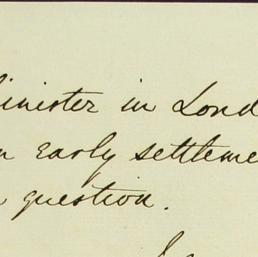 inister in Lond
n early settleme
question.